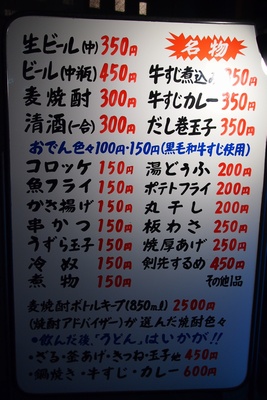 生ビール(中)350円
ビール(中瓶)450円
麦焼酎 300円
清酒(一合)300円
名物
牛すじ煮込み 350円
牛すじカレー 350円
だし巻玉子 350円
おでん色々100円・150円(黒毛和牛すじ使用)
コロッケ 150円
魚フライ 150円
かき揚げ 150円
串かつ 150円
うずら玉子 150円
冷奴 150円
煮物 150円
湯どうふ 200円
ポテトフライ 200円
丸干し 200円
板わさ 250円
焼厚あげ 250円
剣先するめ 450円
その他1品
麦焼酎ボトルキープ(850ml) 2500円
(焼酎アドバイザー)が選んだ焼酎色々
・飲んだ後、「うどん」はいかが!!
・ざる・釜あげ・きつね・玉子他 450円
・鍋焼き・牛すじ・カレー 600円